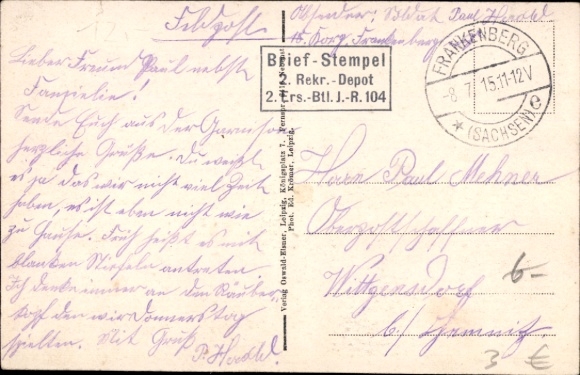 Feldpost
Absender: Soldat Paul
Korp. Frankenberg
Brief-Stempel
2. Rekr.-Depot
2. Ers.-Btl. J.-R. 104
FRANKENBERG
-8.7. 15.11-12V
* (SACHSEN) e
Lieber Freund Paul nebst
Familie!
Sende Euch aus der Garnison
herzliche Grüße. Du weißt
es ja das wir nicht viel Zeit
haben, es ist eben nicht wie
zu Hause. Früh heißt es mit
blanken Stiefeln antreten
Ich denke immer an den Räuber-
den wir Donnerstag
spielten. Mit Gruß
P.
Verlag Oswald-Elsner, Leipzig, Königsplatz 7.
Phot. Ed. Krömer, Leipzig.
Herrn Paul Mehner
Oberpostschaffner
Wittgensdorf
b/ Chemnitz
6-
3 €